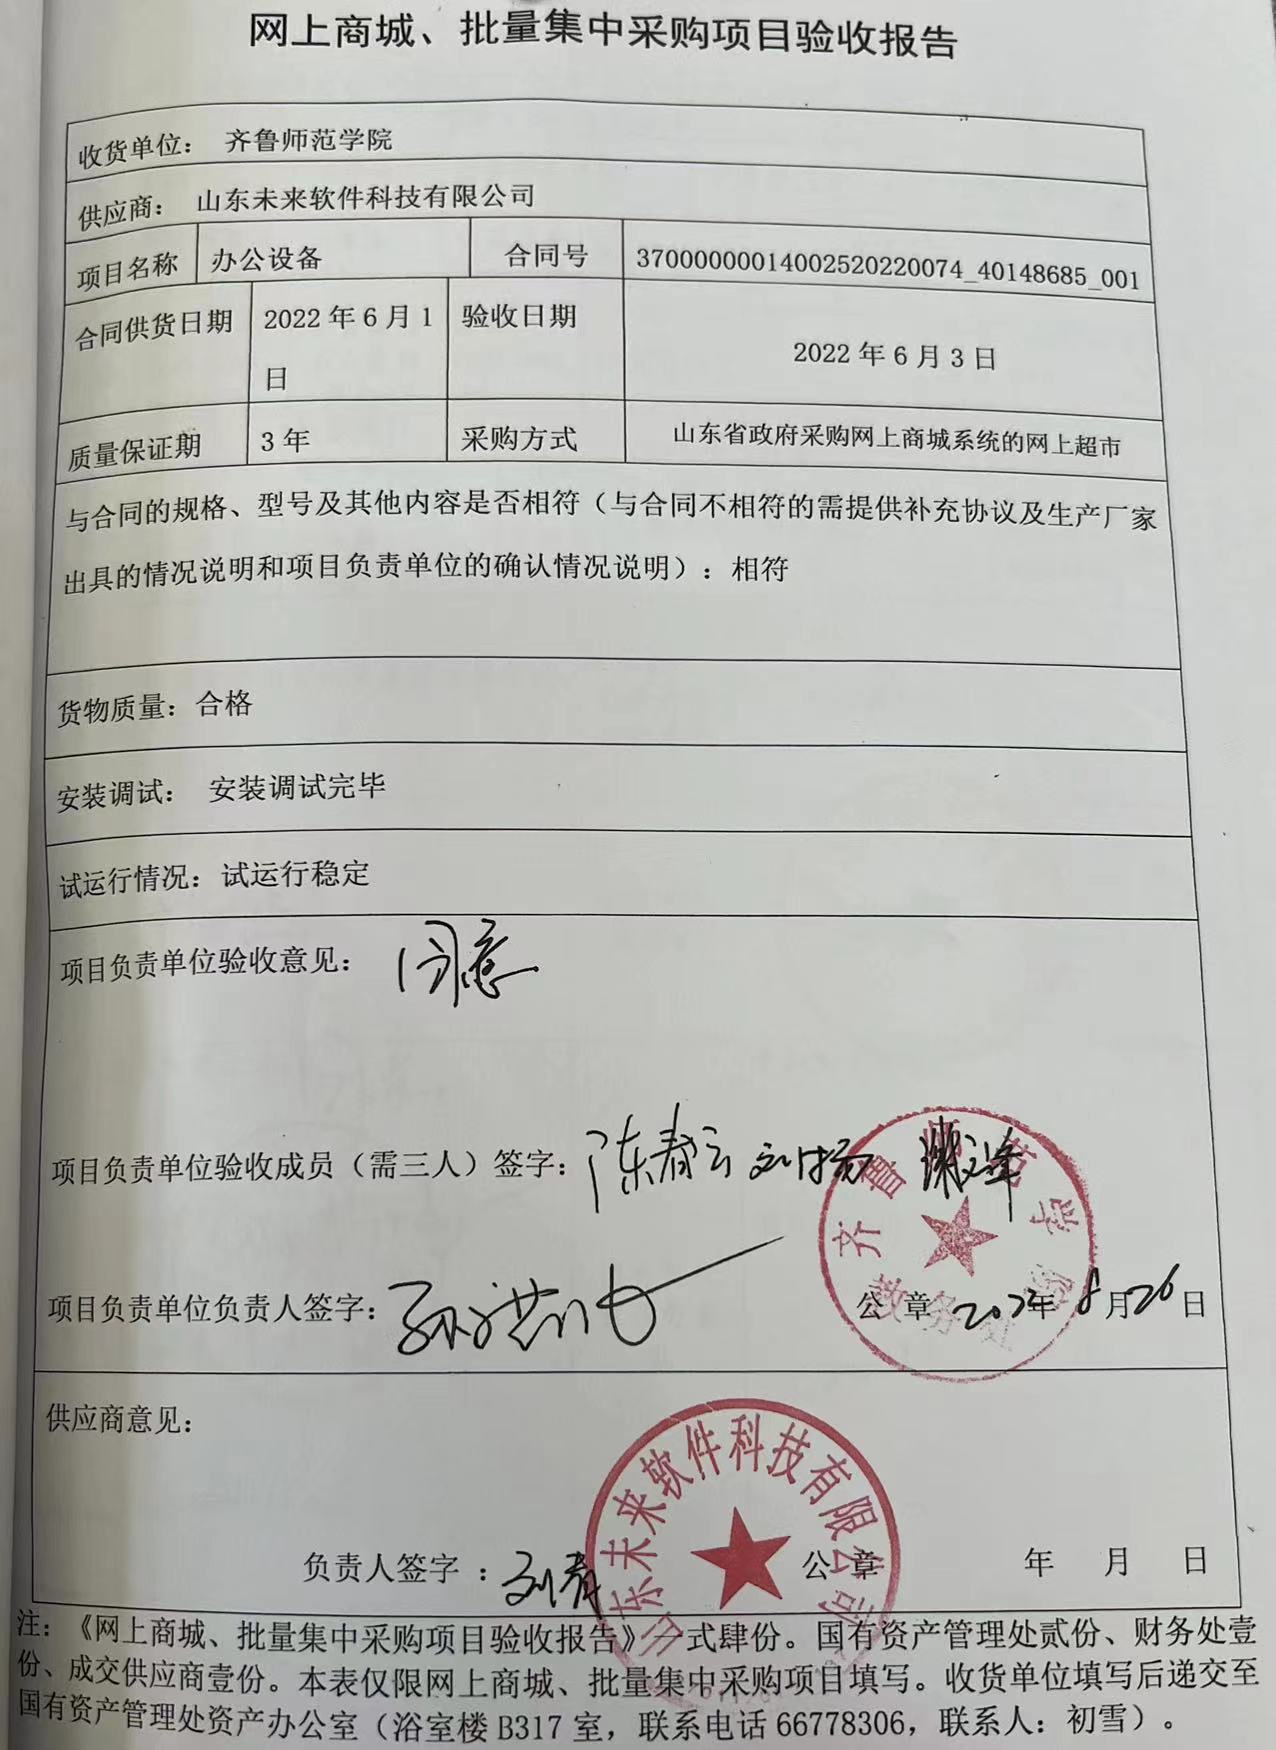 网上商城、批量集中采购项目验收报告
收货单位： 齐鲁师范学院
供应商： 山东未来软件科技有限公司
项目名称 办公设备 合同号 37000000014002520220074_40148685_001
合同供货日期 2022 年 6 月 1 日 验收日期 2022 年 6 月 3 日
质量保证期 3 年 采购方式 山东省政府采购网上商城系统的网上超市
与合同的规格、型号及其他内容是否相符（与合同不相符的需提供补充协议及生产厂家
出具的情况说明和项目负责单位的确认情况说明）：相符
货物质量：合格
安装调试： 安装调试完毕
试运行情况：试运行稳定
项目负责单位验收意见： 同意
项目负责单位验收成员（需三人）签字：陈春云 刘扬
齐鲁师范学院
教务处
项目负责单位负责人签字：
公 章 2022年 8月26日
供应商意见：
山东未来软件科技有限公司
负责人签字 ：刘青 公 章 年 月 日
注：《网上商城、批量集中采购项目验收报告》一式肆份。国有资产管理处贰份、财务处壹
份、成交供应商壹份。本表仅限网上商城、批量集中采购项目填写。收货单位填写后递交至
国有资产管理处资产办公室（浴室楼 B317 室，联系电话 66778306，联系人：初雪）。